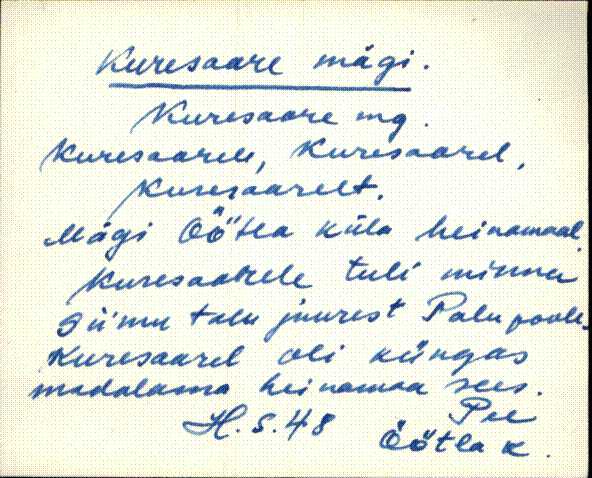 Kuresaare mägi.
Kuresaare mg.
Kuresaarele, Kuresaarel,
Kuresaarelt.
Mägi Öötla küla heinamaal.
Kuresaarele tuli minna
Siimu talu juurest Palu poole.
Kuresaarel oli küngas
madalama heinamaa sees.
H. S. 48 Pee
Öötla k.